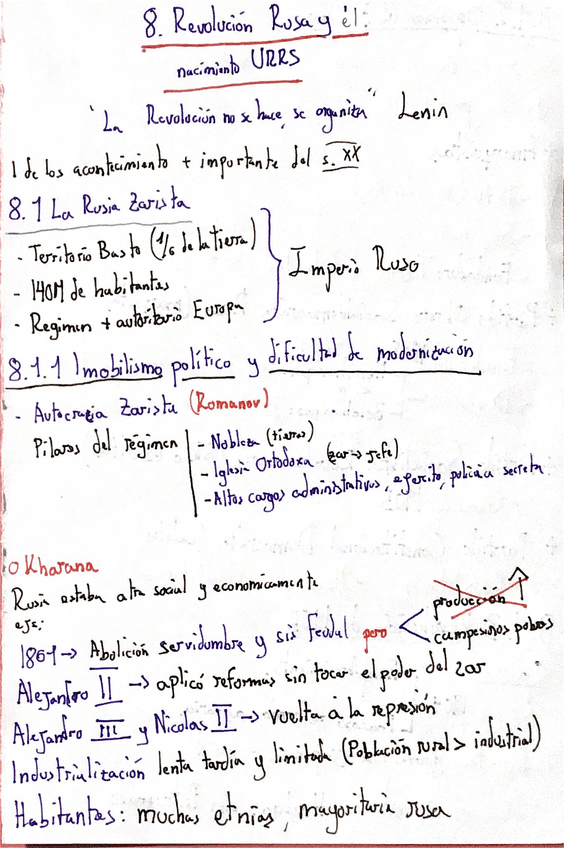 8. Revolución Rusa y él
nacimiento URRS
"La Revolución no se hace, se organiza" Lenin
1 de los acontecimiento + importante del s. XX
8.1 La Rusia Zarista
- Territorio Basto (1/6 de la tierra)
- 140M de habitantes
- Regimen + autoritario Europa
Imperio Ruso
8.1.1 Imobilismo político y dificultad de modernización
- Autocrazia Zarista (Romanov)
Pilares del régimen
- Nobleza (tierras)
- Iglesia Ortodoxa (zar → jefe)
- Altos cargos administrativos, ejercito, policia secreta
Okharana
Rusia estaba atra social y economicamente
ejs:
1861 → Abolición servidumbre y sis feudal pero
producción ↑
campesinos pobres
Alejandro II → aplicó reformas sin tocar el poder del zar
Alejandro III y Nicolas II → vuelta a la represión
Industrialización lenta tardía y limitada (Población rural > industrial)
Habitantes: muchas etnias, mayoritaria rusa